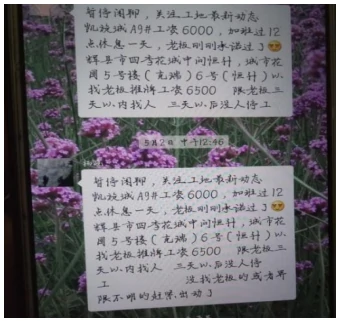 暂停闲聊，关注工地最新动态
凯旋城A9#工资6000，加班过12
点休息一天，老板刚刚承诺过了
辉县市四季花城中间恒轩，城市花
园5号楼（克瑞）6号（恒轩）以
找老板推牌工资6500 限老板三
天以内找人 三天以后没人停工
5月2日 中午12:46
暂停闲聊，关注工地最新动态
凯旋城A9#工资6000，加班过12
点休息一天，老板刚刚承诺过了
辉县市四季花城中间恒轩，城市花
园5号楼（克瑞）6号（恒轩）以
找老板推牌工资6500 限老板三
天以内找人 三天以后没人停
工 没找老板的或者界
限不明的赶紧出动了